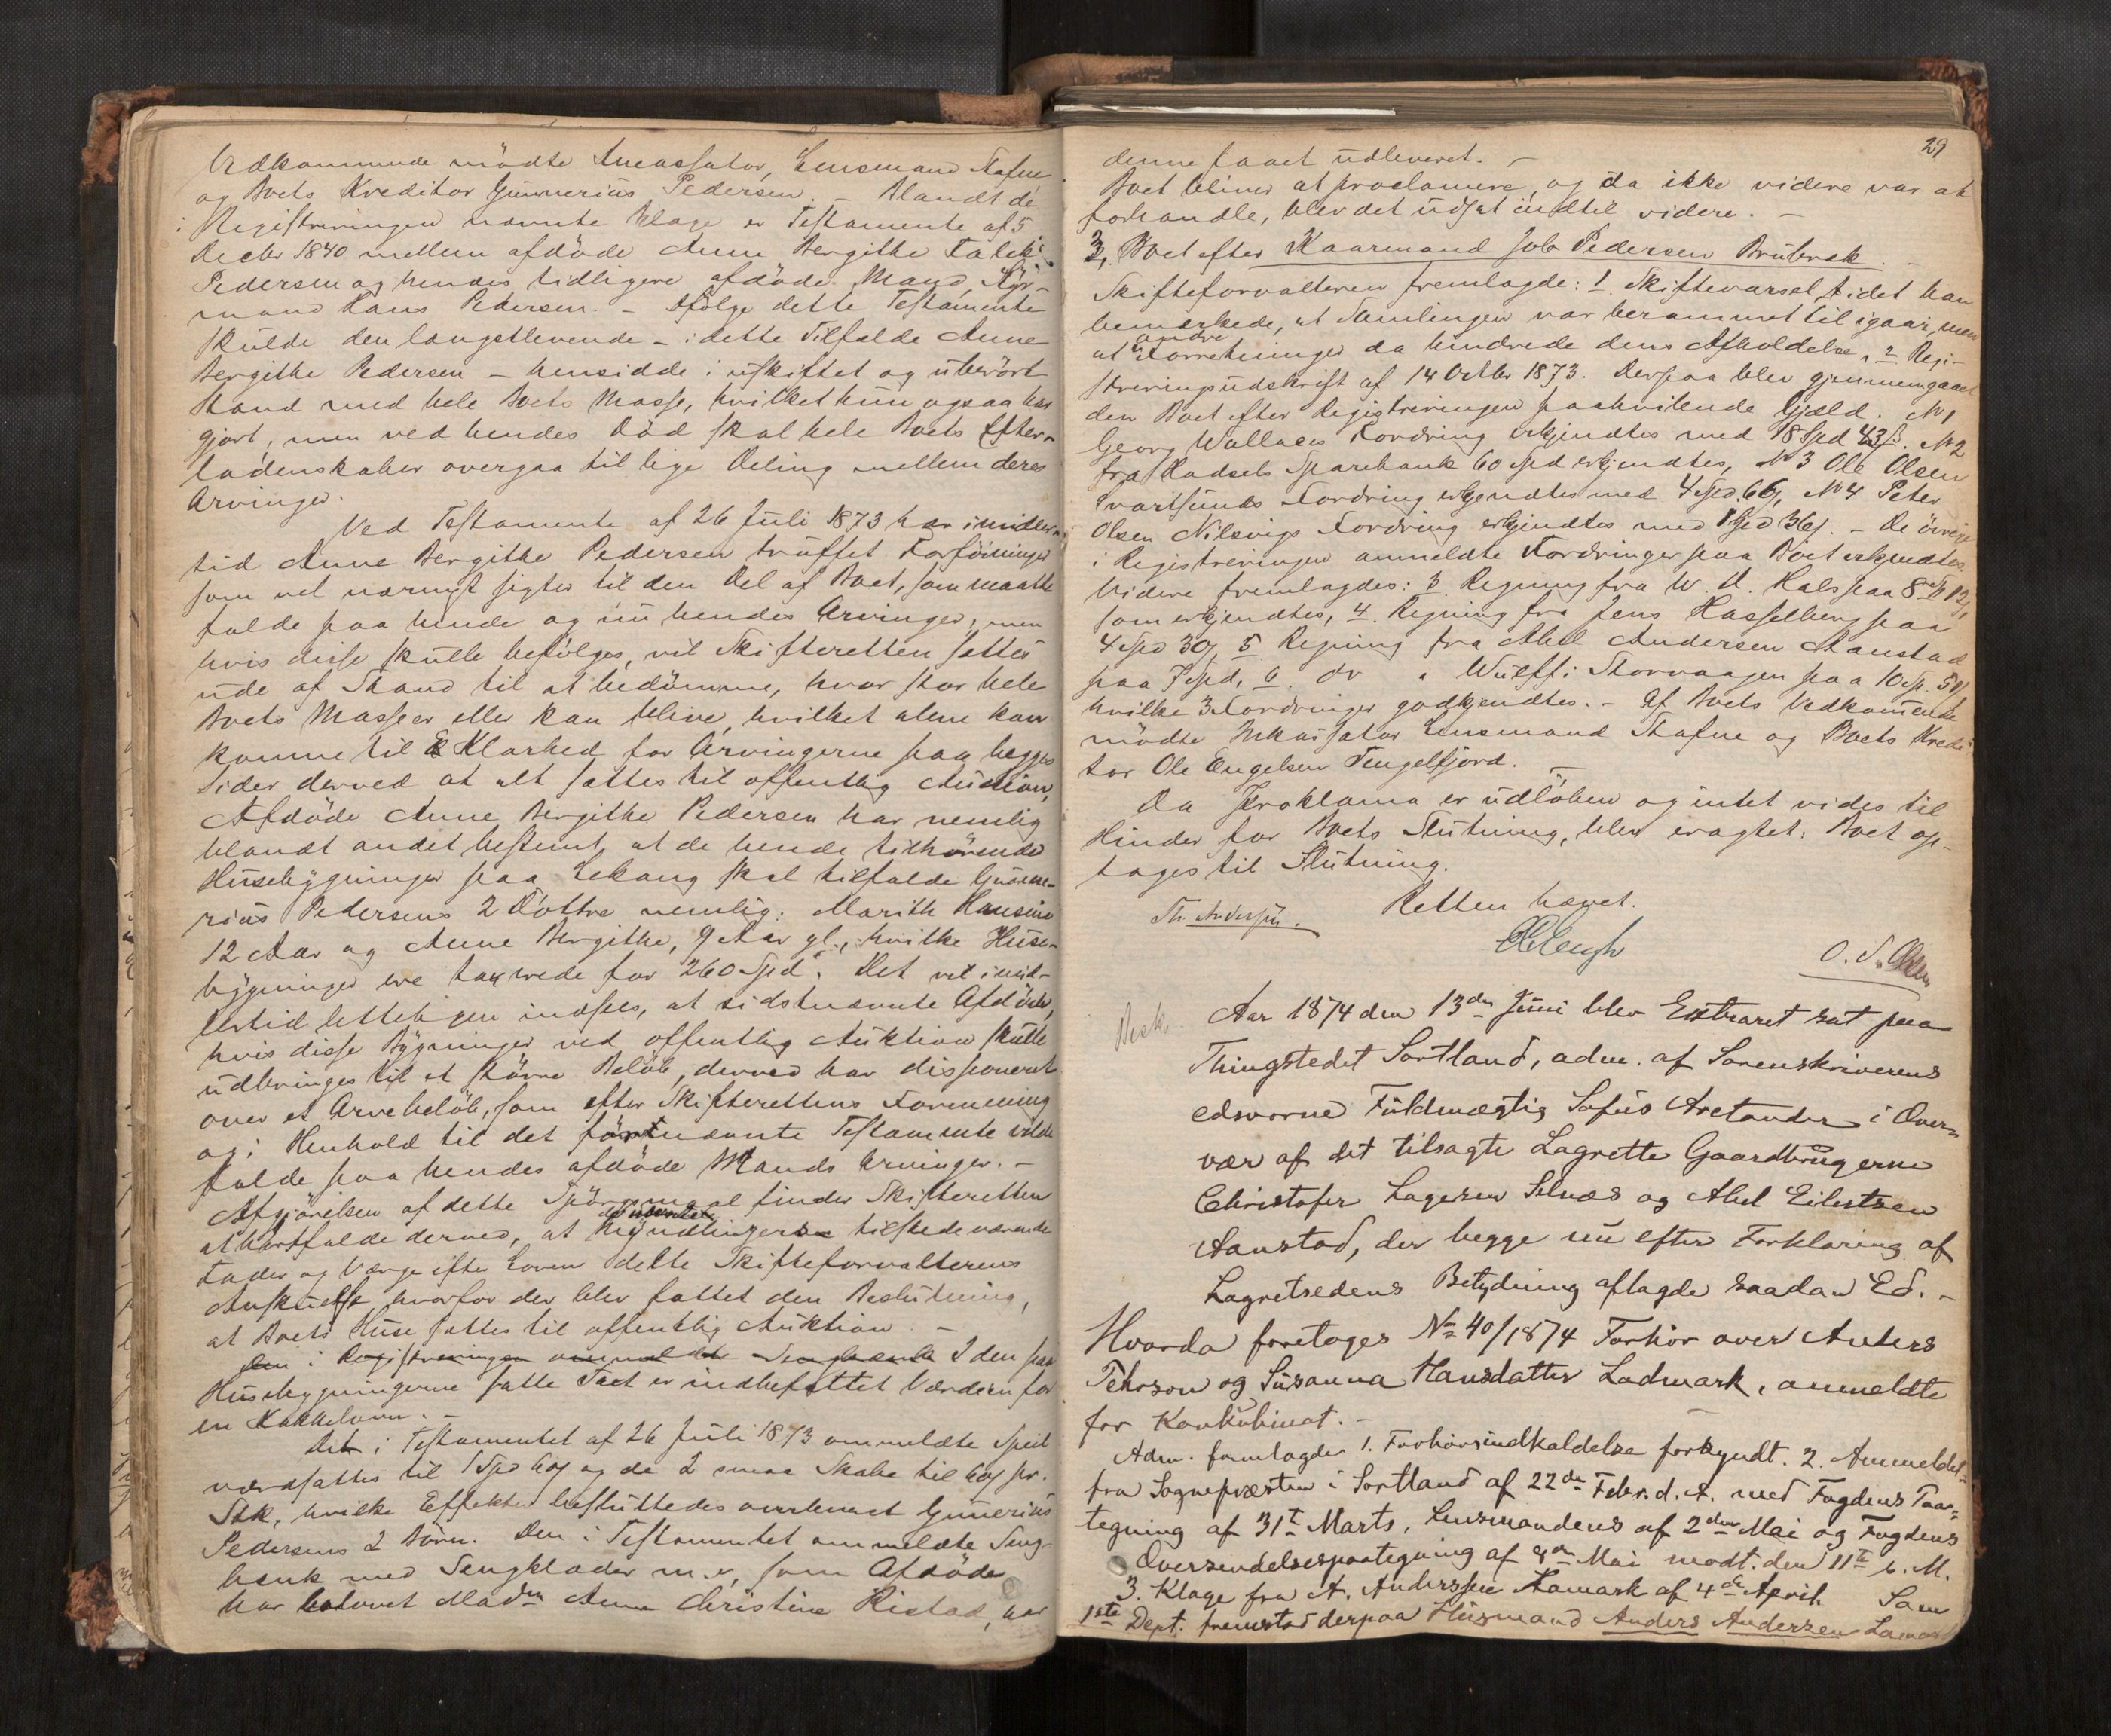 Vedkommende mödte Incassator, Lensmand Stafne
og Boets Kreditor Gunnerius Pedersen. – Blandt de
i Registreringen nævnte Bilage er Testamente af 5
Decbr 1840 mellem afdöde Anne Bergithe
Pedersen og hendes tidligere afdöde Mand, Styr-
mand Hans Pedersen. – Ifölge dette Testamente
skulde den længstlevende – i dette Tilfælde Anne
Bergithe Pedersen – hensidde i uskiftet og uberört
Stand med hele Boets Masse, hvilket hun ogsaa har
gjort, men ved hendes Död skal hele Boets Efter-
ladenskaber overgaa til lige Deling mellem deres
Arvinger.
Ved Testamente af 26 Juli 1873 har imidler-
tid Anne Bergithe Pedersen truffet Forföininger
som vel nærmest sigter til den Del af Boet, som maatte
falde paa hende og nu hendes Arvinger, men
hvis disse skulle befölges, vil Skifteretten sættes
ude af Stand til at bedömme, hvor stor hele
Boets Masse er eller kan blive, hvilket alene kan
komme til Klarhed for Arvingerne paa begge
Sider derved at alt sættes til offentlig Auction,
Afdöde Anne Bergithe Pedersen har nemlig
blandt andet bestemt, at de hende tilhörende
Husebygninger paa Lekang skal tilfalde Gunne-
rius Pedersens 2 Döttre nemlig: Marith Hansine
12 Aar og Anne Bergithe, 9 Aar gl., hvilke Huse-
bygninger ere taxerede for 260 Spd. Det vil imid-
lertid letteligen indsees, at sidstnævnte Afdöde,
hvis disse Bygninger ved offentlig Auktion skulle
udbringes til et större Belöb, derved har disponeret
over et Arvebelöb, som efter Skifterettens Formening
og i Henhold til det förstnævnte Testamente vilde
falde paa hendes afdöde Mands Arvinger. –
Afgjörelsen af dette Spörgsmaal finder Skifteretten
at bortfalde derved, at Myndlingers tilstedeværende
Fader og Værge efter Loven delte Skifteforvalterens
Anskuelse, hvorfor der blev fattet den Beslutning,
at Boets Huse sættes til offentlig Auktion –
Den i Registreringen anmeldte Sengebænk I den paa
Husebygningerne satte Taxt er indbefattet Værdien for
en Kakkelovn. –
Det i Testamentet af 26 Juli 1873 ommeldte Speil
værdsattes til 1 Spd 60 s og de 2 smaa Skabe til 60 s pr.
Stk, hvilke Effekter besluttedes overleveret Gunerius
Pedersens 2 Börn. Den i Testamentet ommeldte Seng-
bænk med Sengklæder m. v, som Afdöde
har lovet Madm Anne Christine Ristad, har
29
denne faaet udleveret. –
Boet bliver at proclamere, og da ikke videre var at
forhandle, blev det udsat indtil videre. –
3, Boet efter Kaarmand Job Pedersen Brubrak. –
Skifteforvalteren fremlagde: 1 Skiftevarsel, idet han
bemærkede, at Samlingen var berammet til igaar, men
at andre Forretninger da hindrede dens Afholdelse, 2 Regi-
streringsudskrift af 14 Octbr 1873. Derpaa blev gjennemgaaet
den Boet efter Registreringen paahvilende Gjæld. No 1
Georg Wallaces Fordring erkjendtes med 18 Spd 43 s. No 2
fra Hadsels Sparebank 60 Spd erkjendtes, No 3 Ole Olsen
Svartsunds Fordring erkjendtes med 4 Spd. 66 s, No 4 Peter
Olsen Nilsvigs Fordring erkjendtes med 1 Spd 36 s. – De övrige
i Registreringen anmeldte Fordringer paa Boet erkjendtes
Videre fremlagdes: 3 Regning fra W. D. Hals paa 8 Spd 12 s,
som erkjendtes, 4. Regning fra Jens Hasselberg paa
4 Spd 30 s, 5 Regning fra Abel Andersen Aanstad
paa 7 Spd, 6. do " Wulff i Storvaagen paa 10 Sp.
hvilke 3 Fordringer godkjendtes. – Af Boets Vedkommende
mödte Inkassator Lensmand Stafne og Boets Kredi-
tor Ole Engelsen Tengelfjord. –
Da Proklama er udlöben og intet vides til
Hinder for Boets Slutning, blev eragtet: Boet op-
tages til Slutning.
Retten hævet.
Th. Andersen.
O. S. Olsen
Besk. Aar 1874 den 13de Juni blev Extraret sat paa
Thingstedet Sortland, adm. af Sorenskriverens
edsvorne Fuldmægtig Sofus Arctander i Over-
vær af det tilsagte Lagrette Gaardbrugerne
Christofer Lagesen Selnæs og Abel Eilertsen
Aanstad, der begge nu efter Forklaring af
Lagretsedens Betydning aflagde saadan Ed. –
Hvorda foretoges No 40/1874 Forhör over Anders
Pehrson og Susanna Hansdatter Lodmark, anmeldte
for Konkubinat. –
Adm. fremlagde 1. Forhörsindkaldelse forkyndt. 2. Anmeldel-
fra Sognepræsten i Sortland af 22de Febr. d. A. med Fogdens Paa-
tegning af 31t Marts, Lensmandens af 2den Mai og Fogdens
Oversendelsespaategning af 9de Mai modt. den 11te s. M.
3. Klage fra A. Anderssen Lamark af 4de April. Som
1ste Dept. fremstod derpaa Husmand Anders Andersen Lamark